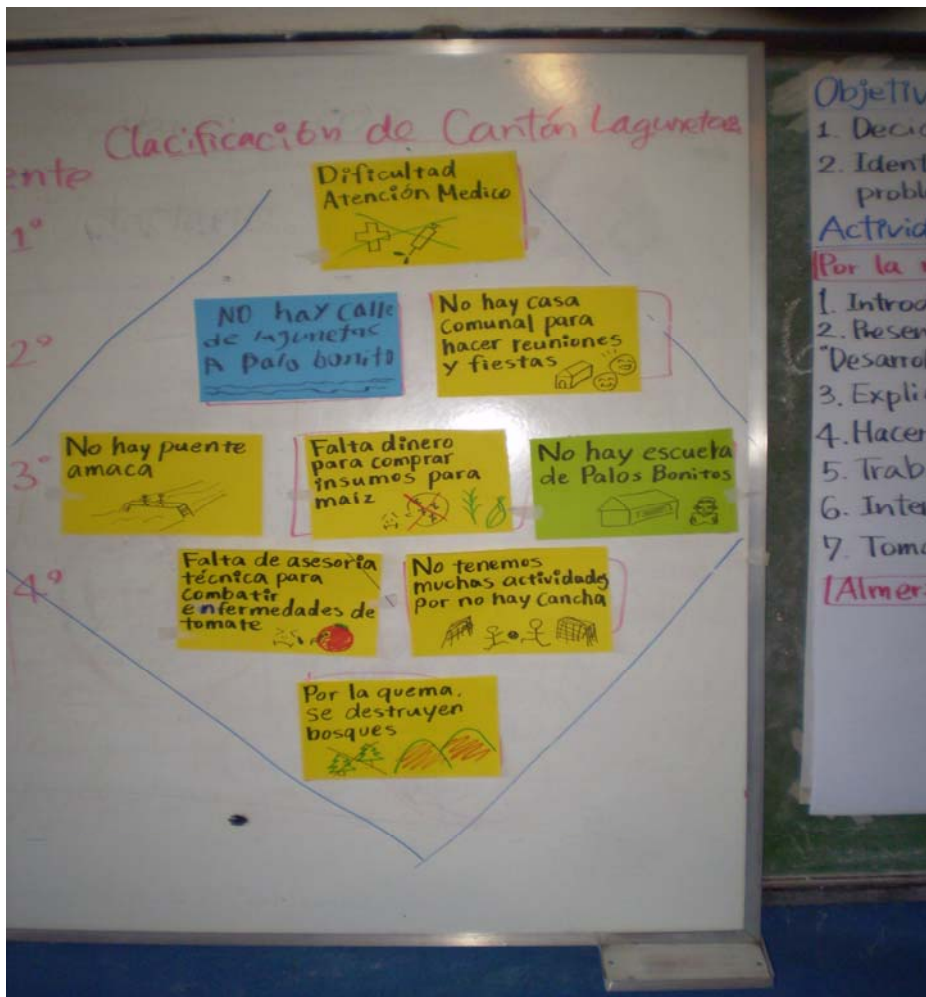 Clacificación de Cantón Lagunetas
ente
1º
Dificultad
Atención Medico
2º
NO hay calle
de lagunetas
A Palo bonito
No hay casa
comunal para
hacer reuniones
y fiestas
3º
No hay puente
amaca
Falta dinero
para comprar
insumos para
maíz
No hay escuela
de Palos Bonitos
4º
Falta de asesoría
técnica para
combatir
enfermedades de
tomate
No tenemos
muchas actividades
por no hay cancha
Por la quema,
se destruyen
bosques
Objetiv
1. Decid
2. Ident
probl
Activid
Por la
1. Introd
2. Presen
"Desarrol
3. Expli
4. Hacer
5. Trab
6. Inter
7. Toma
Almer